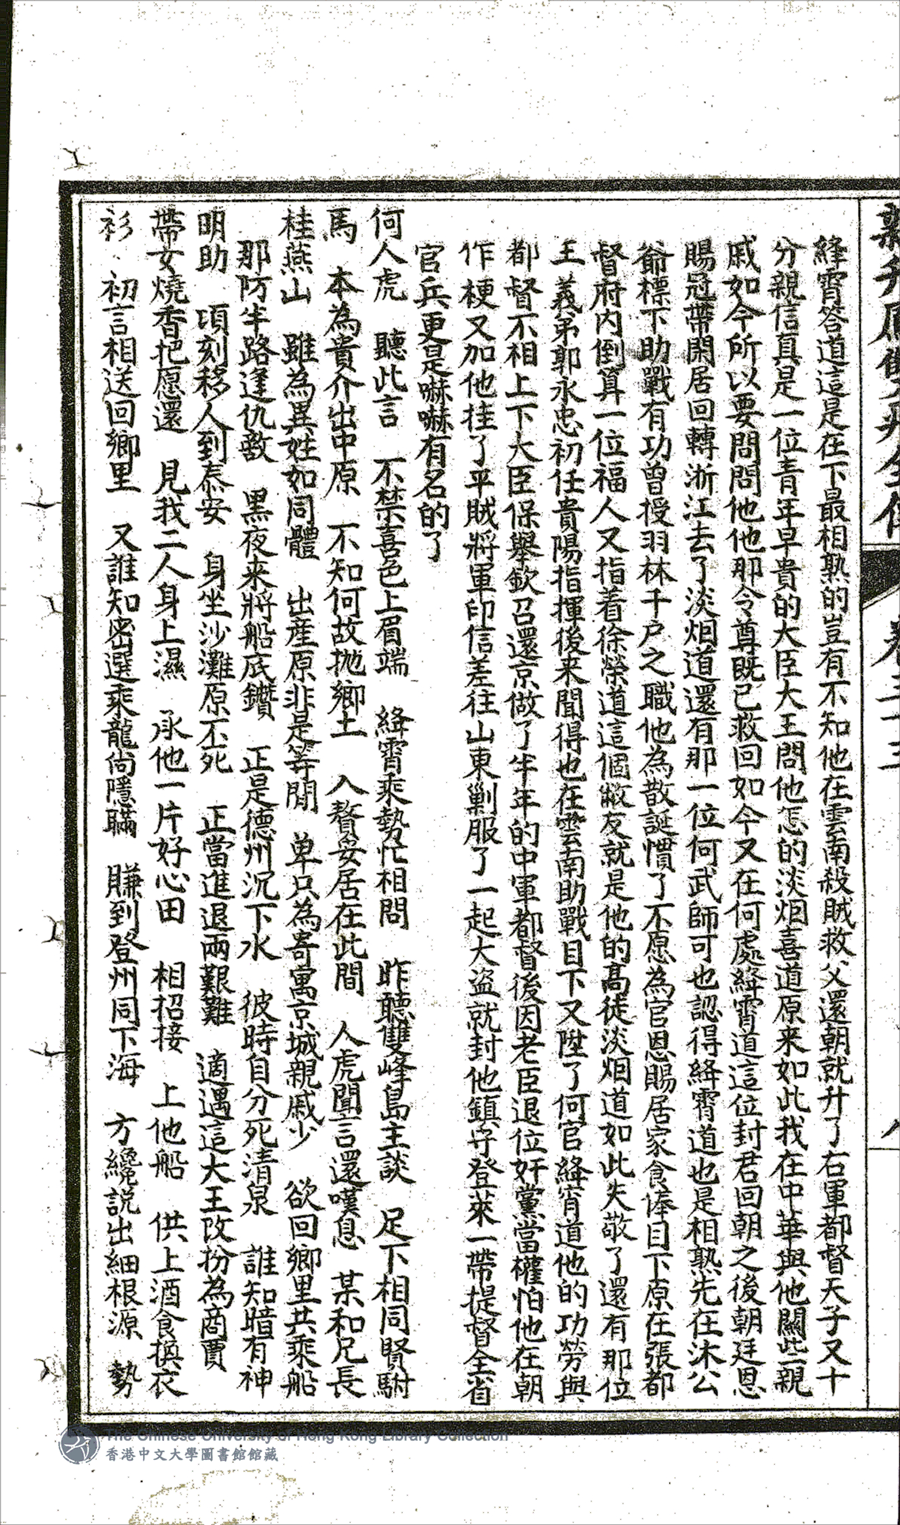 絳霄答道這是在下最相熟的豈有不知他在雲南殺賊救父還朝就升了右軍都督天子又十
分親信真是一位青年早貴的大臣大王問他怎的淡烟喜道原来如此我在中華與他關些親
戚如今所以要問問他他那令尊既已救回如今又在何處絳霄道這位封君回朝之後朝廷恩
賜冠帶閑居回轉浙江去了淡烟道還有那一位何武師可也認得絳霄道也是相熟先在沐公
爺標下助戰有功曾授羽林千户之職他為散誕慣了不愿為官恩賜居家食俸目下原在張都
督府内倒算一位福人又指着徐榮道這個敝友就是他的高徒淡烟道如此失敬了還有那位
王義弟郭永忠初任貴陽指揮後来聞得也在雲南助戰目下又陞了何官絳宵道他的功勞與
都督不相上下大臣保舉欽召還京做了半年的中軍都督後因老臣退位奸黨當權怕他在朝
作梗又加他挂了平賊將軍印信差往山東剿服了一起大盗就封他鎮守登萊一帶提督全省
官兵更是嚇嚇有名的了
何人虎　聽此言　不禁喜色上眉端　絳霄乘勢忙相問　昨聽雙峰島主談　足下相同賢駙
馬　本為貴介出中原　不知何故抛鄉土　入贅安居在此間　人虎聞言還嘆息　某和兄長
桂燕山　雖為異姓如同體　出産原非是等閒　单只為寄寓京城親戚少　欲回鄉里共乘船
那防半路逢仇敵　黑夜来將船底鑽　正是德州沉下水　彼時自分死清泉　誰知暗有神
明助　項刻移人到泰安　身坐沙灘原不死　正當進退兩艱難　適遇這大王改扮為商賈
帶女燒香把愿還　見我二人身上濕　承他一片好心田　相招接　上他船　供上酒食換衣
衫　初言相送回鄉里　又誰知密選乘龍尚隱瞞　賺到登州同下海　方纔説出細根源　勢
The Chinese University of Hong Kong Library Collection
香港中文大學圖書館館藏